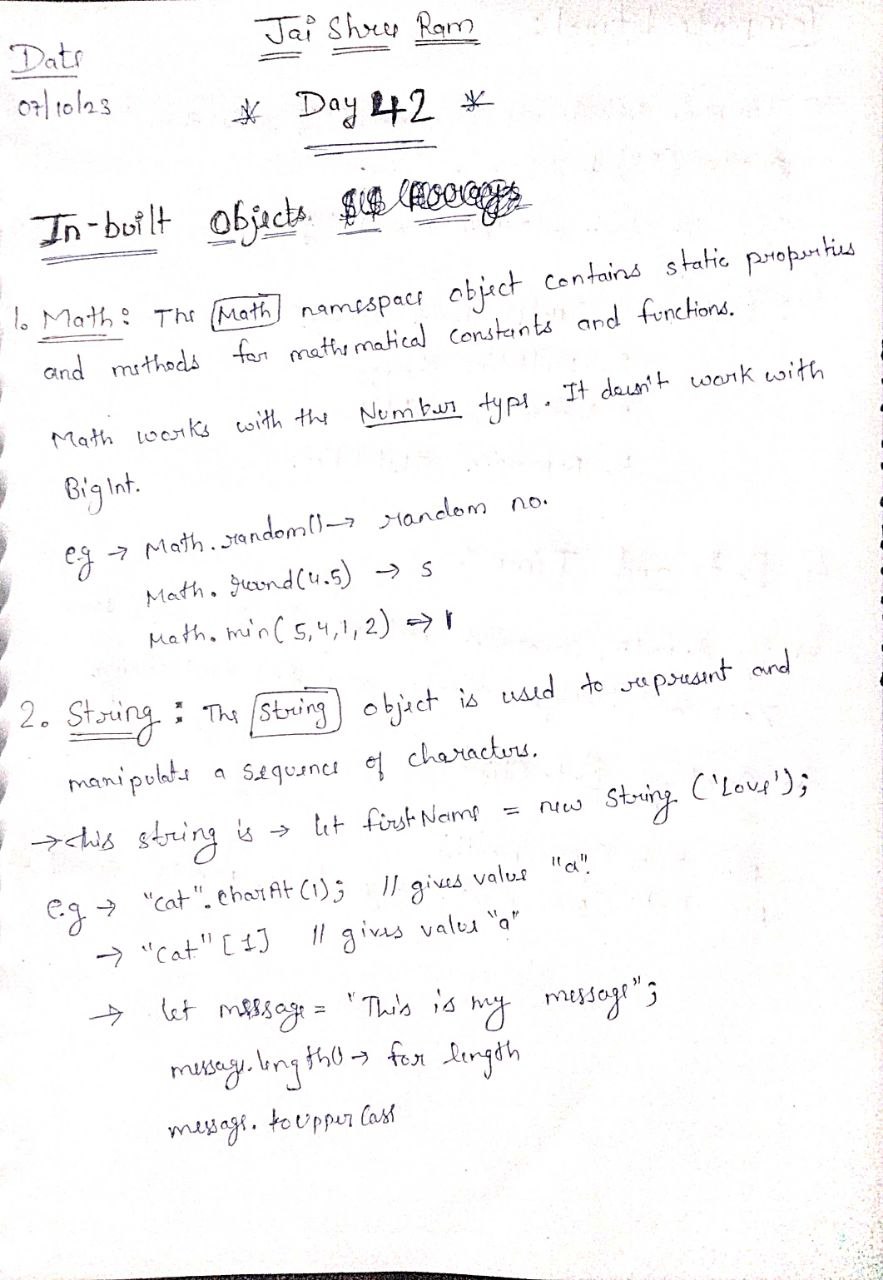 Jai Shree Ram
Date
07/10/23
* Day 42 *
In-built Objects
1. Math: The Math namespace object contains static properties
and methods for mathematical constants and functions.
Math works with the Number type. It doesn't work with
BigInt.
eg → Math.random() → random no.
Math.round(4.5) → 5
Math.min(5,4,1,2) → 1
2. String: The String object is used to represent and
manipulate a sequence of characters.
→ this string is → let firstName = new String ('Love');
e.g → "cat".charAt(1); // gives value "a".
→ "cat"[1] // gives value "a"
→ let message = "This is my message";
message.length() → for length
message.toUpperCase